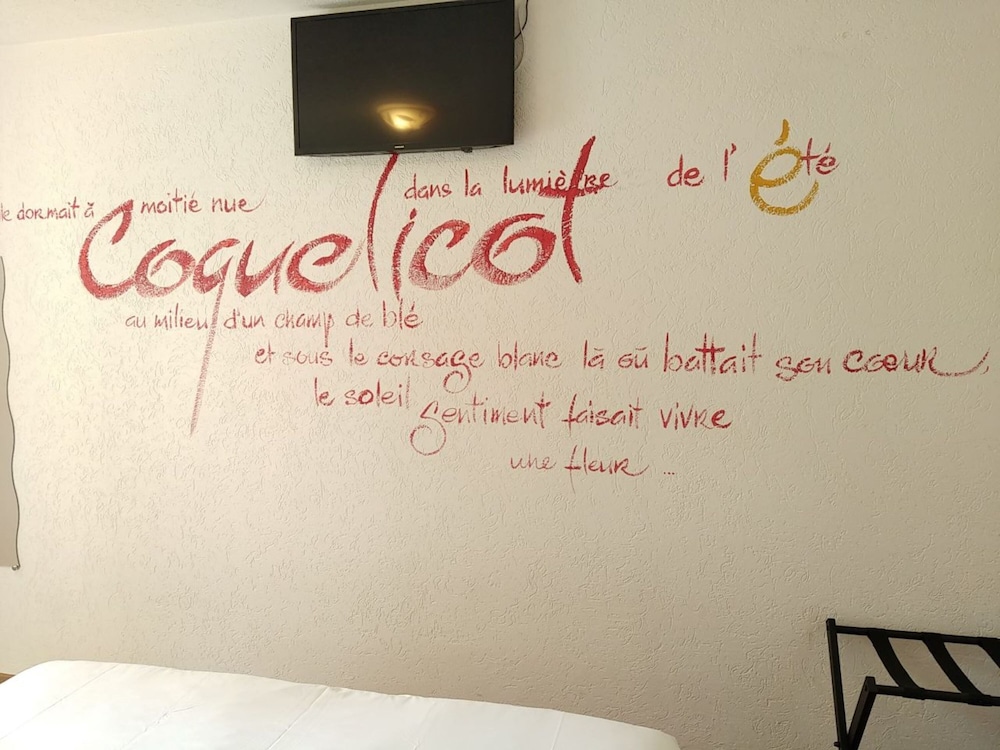 le dormait à moitié nue dans la lumière de l'été
Coquelicot
au milieu d'un champ de blé
et sous le corsage blanc là où battait son cœur,
le soleil
Sentiment faisait vivre
une fleur ...